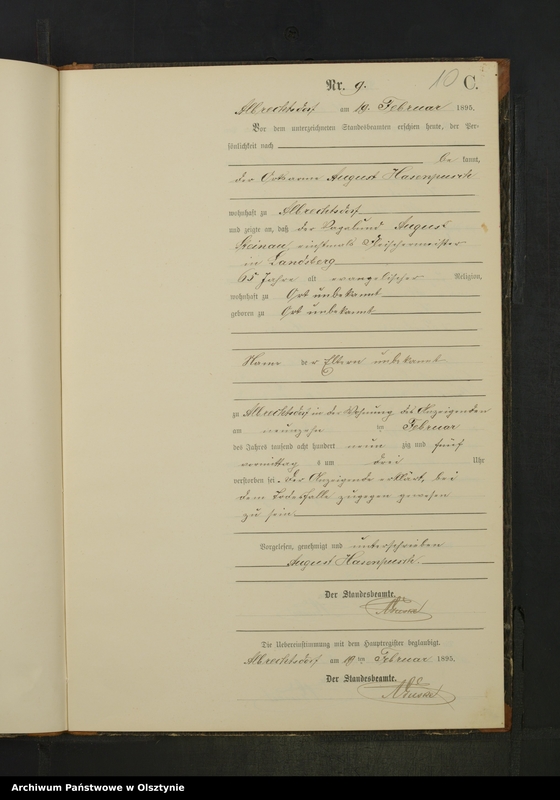 Nr. 9. 10 C.
Albrechtsdorf am 19. Februar 1895.
Vor dem unterzeichneten Standesbeamten erschien heute, der Per-
sönlichkeit nach
be kannt,
der Ortsarme August Hasenpusch
wohnhaft zu Albrechtsdorf
und zeigte an, daß der Vagabund August
einstmals Fleischermeister
in Landsberg
65 Jahre alt evangelischer Religion,
wohnhaft zu Ort unbekannt
geboren zu Ort unbekannt
Name der Eltern unbekannt
zu Albrechtsdorf in der Wohnung des Anzeigenden
am neunzehn ten Februar
des Jahres tausend acht hundert neun zig und fünf
vormittag s um drei Uhr
verstorben sei. Der Anzeigende erklärt, bei
dem Todesfalle zugegen gewesen
zu sein
Vorgelesen, genehmigt und unterschrieben
August Hasenpusch.
Der Standesbeamte.
Die Uebereinstimmung mit dem Hauptregister beglaubigt.
Albrechtsdorf am 19 ten Februar 1895.
Der Standesbeamte.
Archiwum Państwowe w Olsztynie